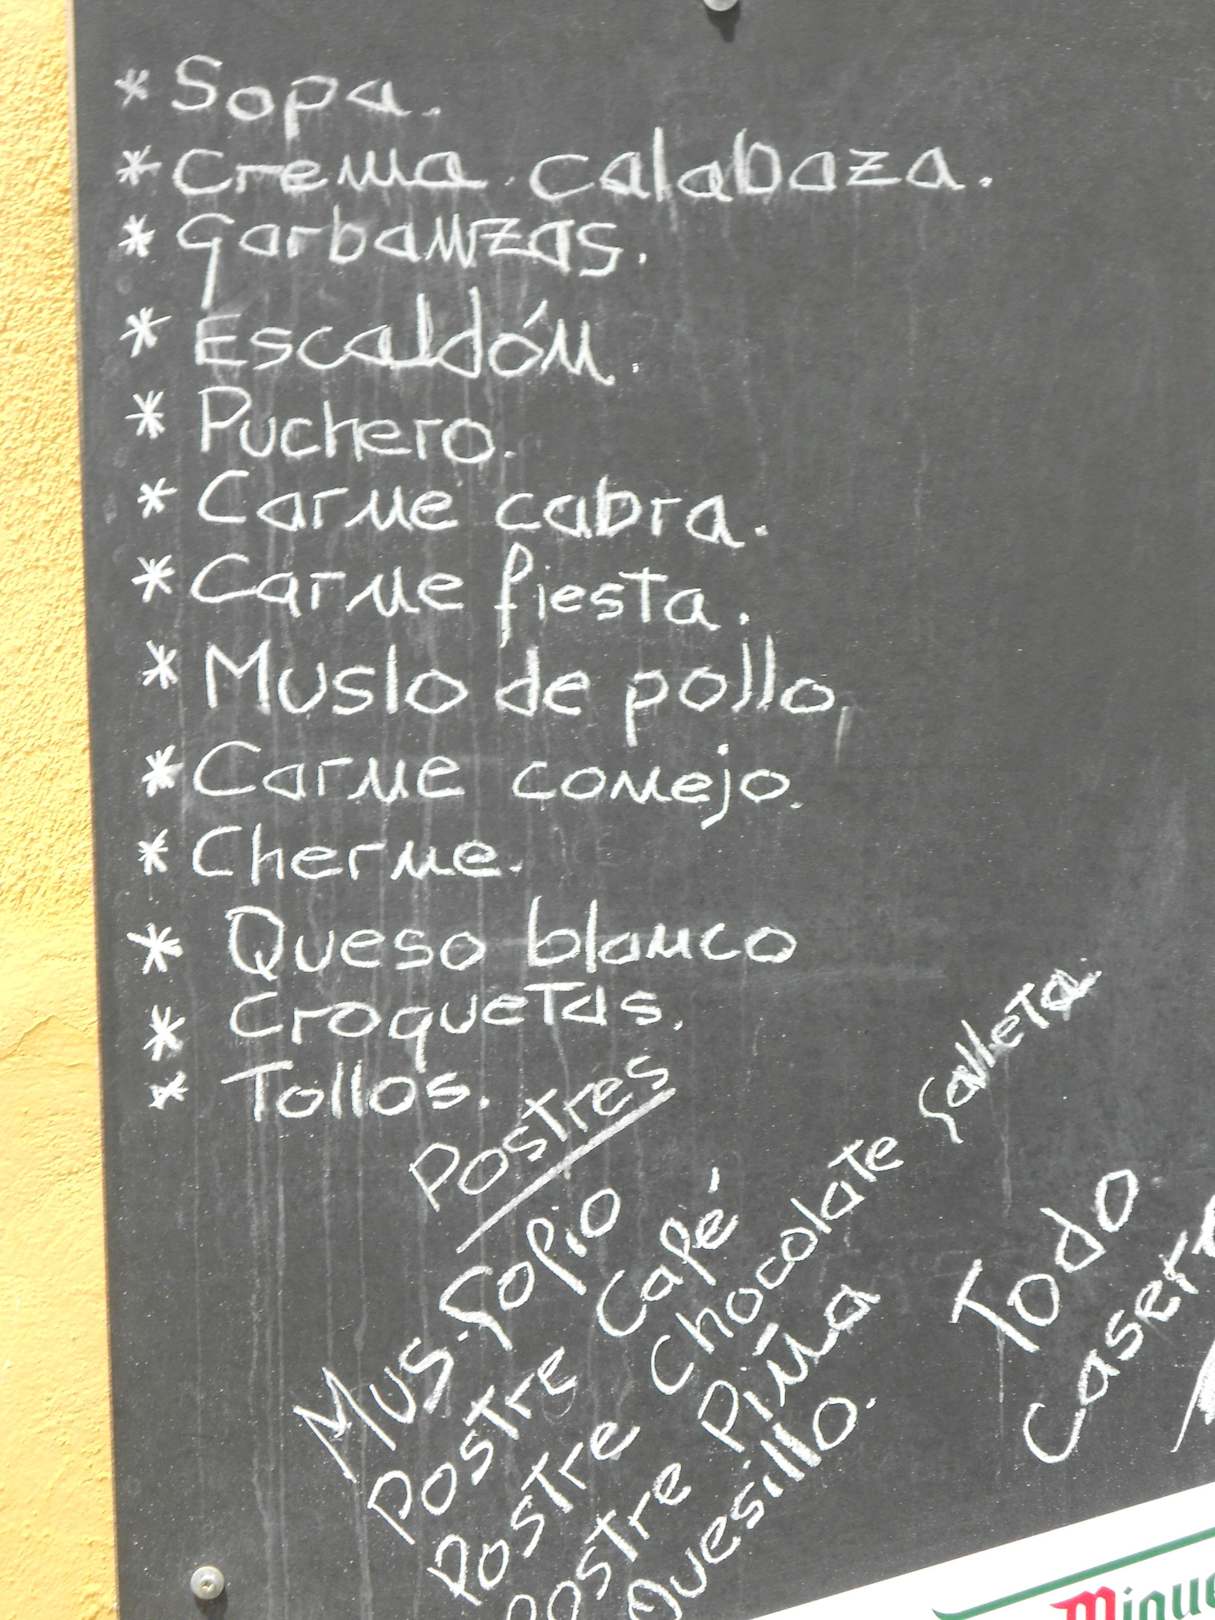 * Sopa.
* Crema calabaza.
* Garbanzas.
* Escaldón.
* Puchero.
* Carne cabra.
* Carne fiesta.
* Muslo de pollo.
* Carne conejo.
* Cherne.
* Queso blanco
* Croquetas.
* Tollos.
Postres
Mus. Gofio
Postre Café
Postre chocolate galleta.
Postre Piña
Quesillo.
Todo
Casero
Migue